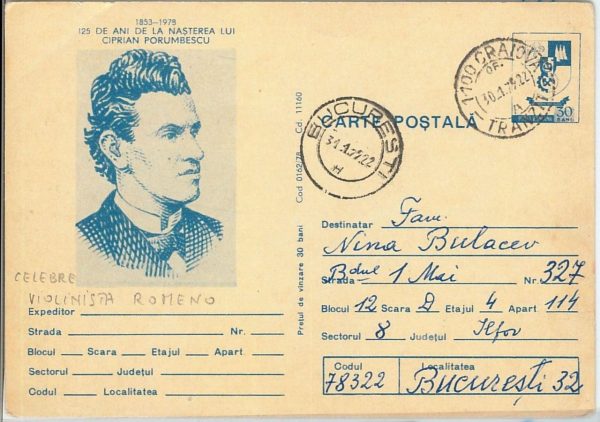 1853–1978
125 DE ANI DE LA NAȘTEREA LUI
CIPRIAN PORUMBESCU
CELEBRE
VIOLINISTA ROMENO
Expeditor
Strada Nr.
Blocul Scara Etajul Apart
Sectorul Județul
Codul Localitatea
Prețul de vînzare 30 bani Cod 0162/78 Cd. 11160
CARTE POȘTALĂ
BUCUREȘTI
31.1.79.22
H
1100 CRAIOVA
OF.
30.1.79.22
TRANZIT
30
BANI
Destinatar Fam.
Nina Bulacev
Strada Bdul 1 Mai Nr. 327
Blocul 12 Scara D Etajul 4 Apart 114
Sectorul 8 Județul Ilfov
Codul Localitatea
78322 București 32